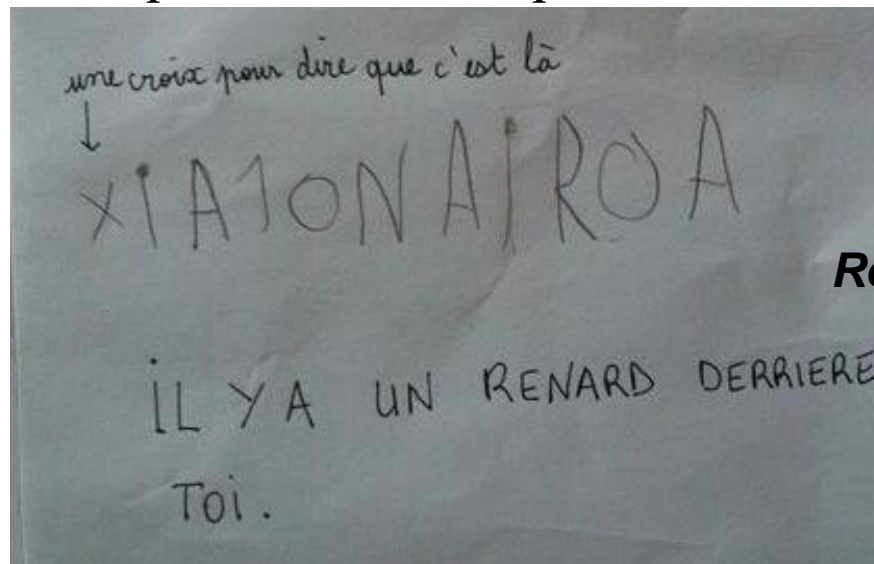 une croix pour dire que c'est là
xiA1ONAiROA
Re
iL Y A UN RENARD DERRIERE
Toi.